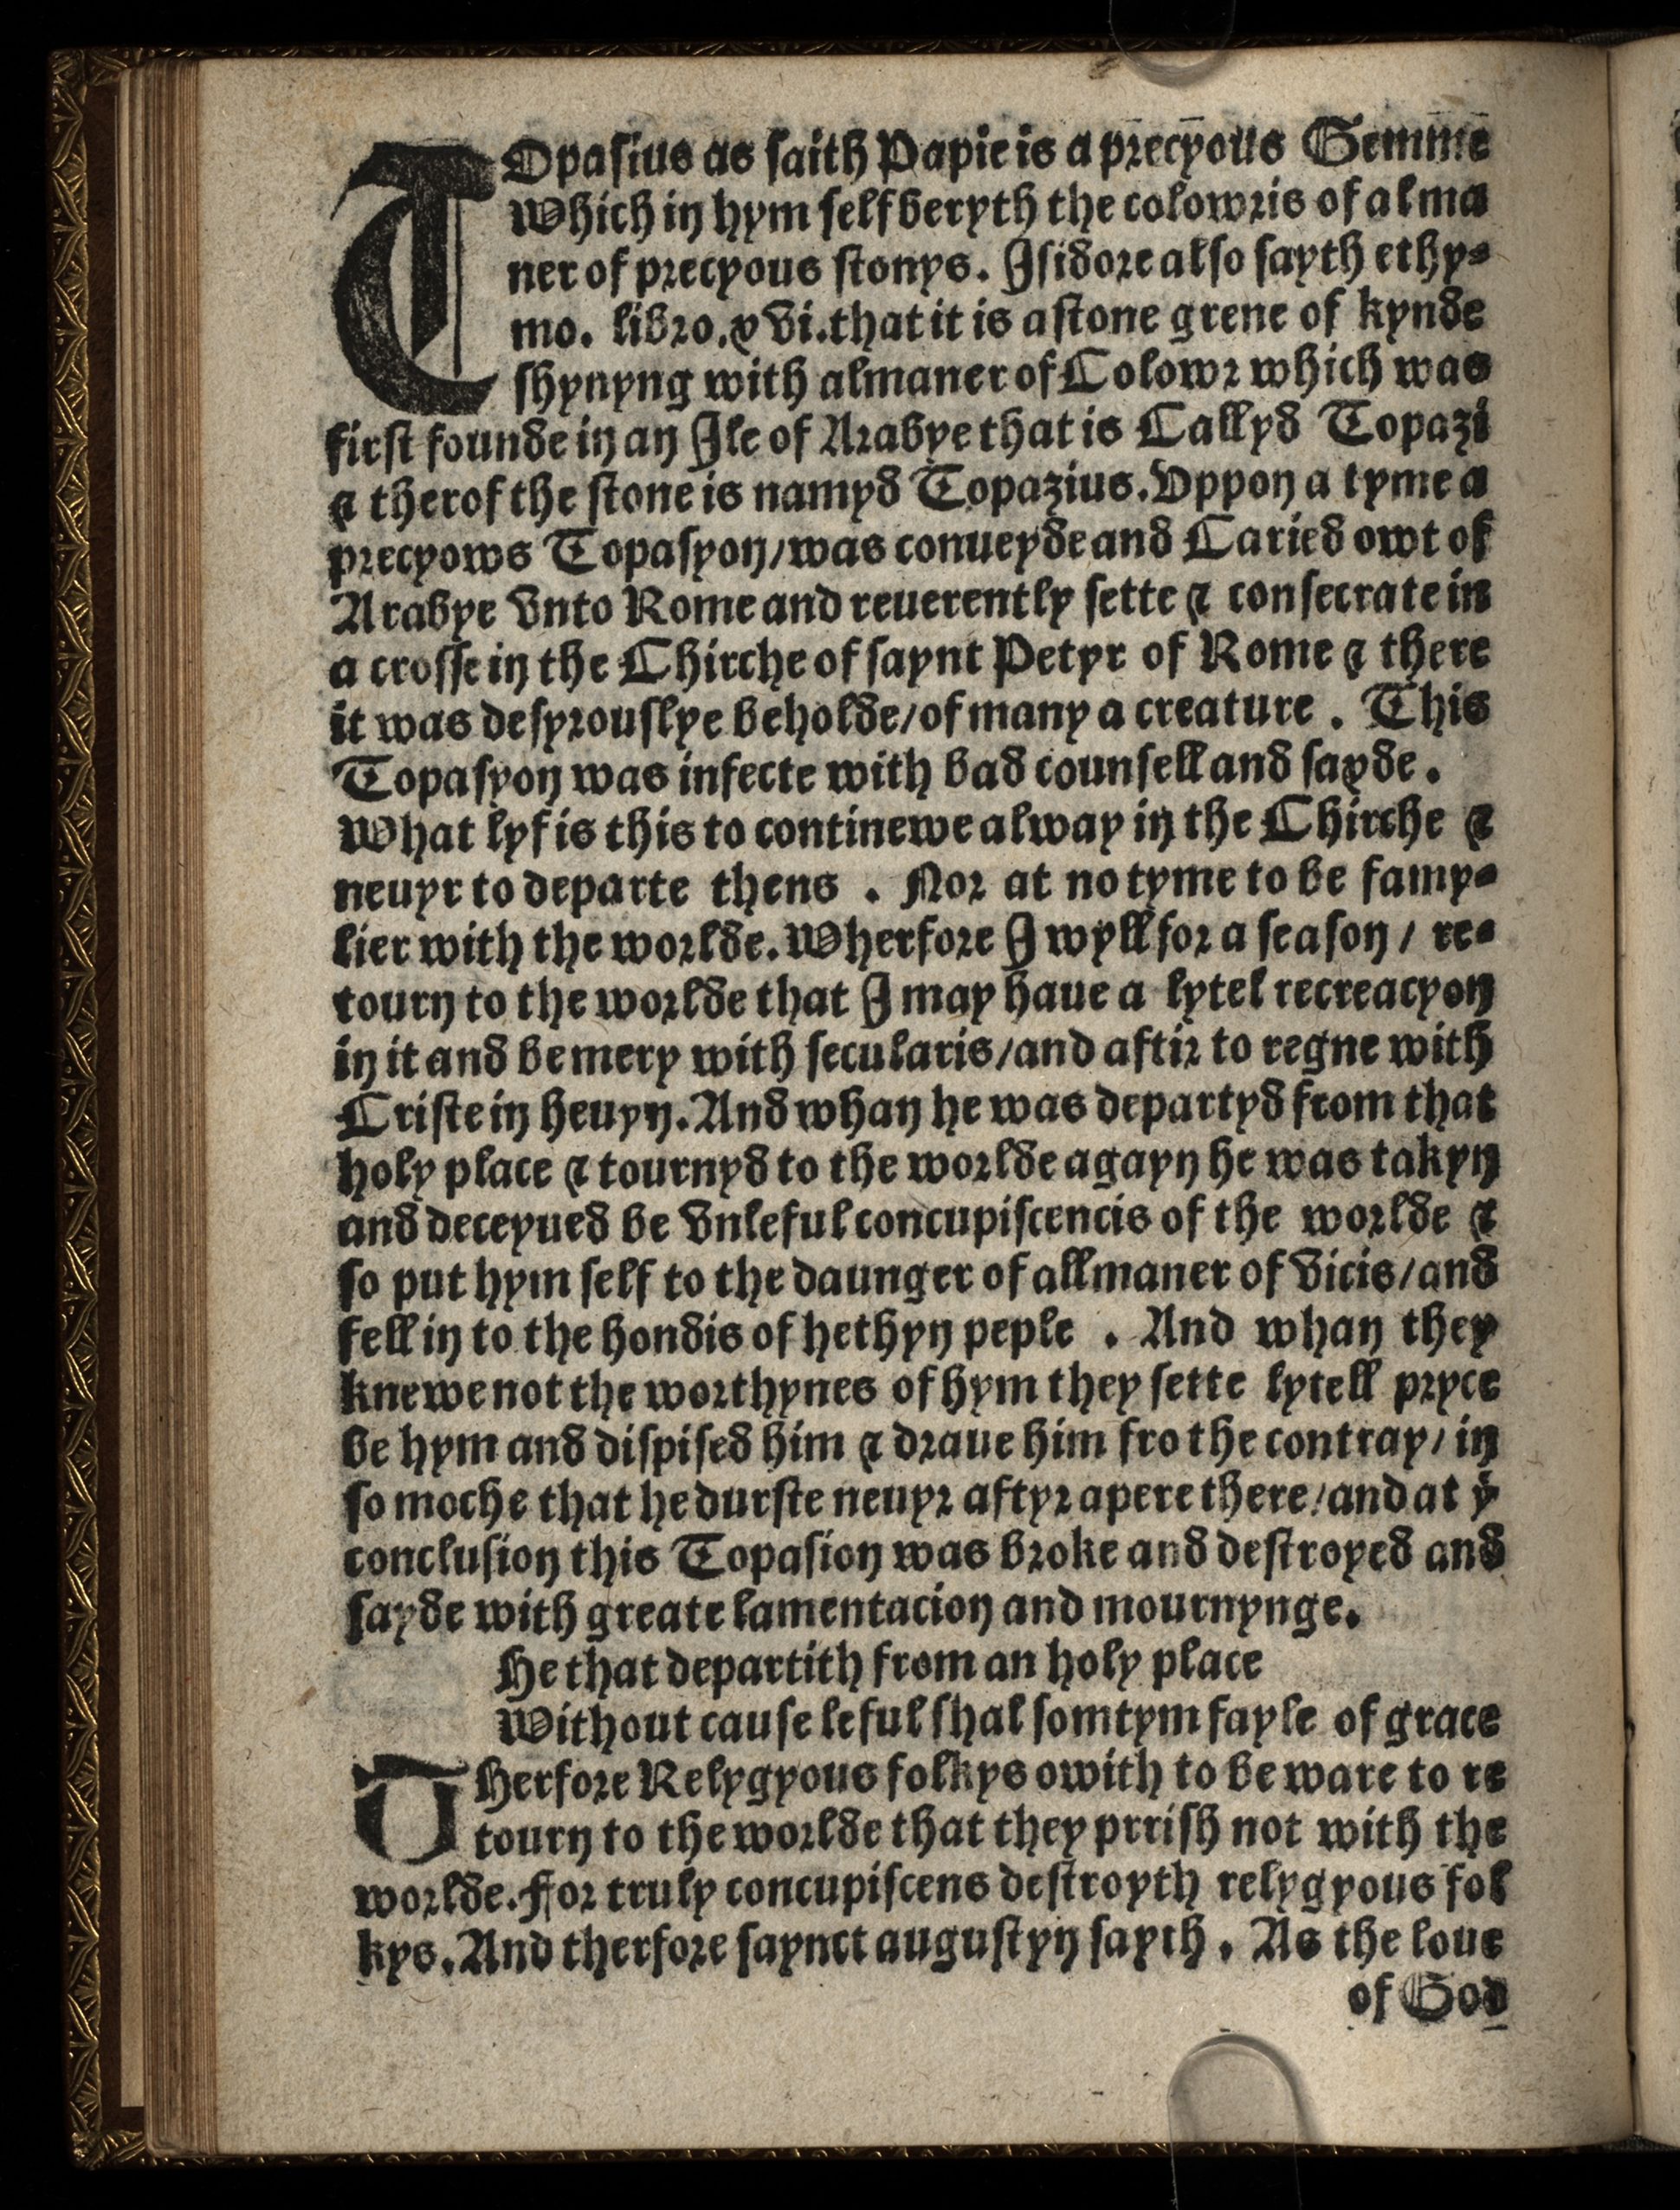 TOpasius as saith Papie is a precyous Gemme
Which in hym self beryth the colowris of al ma
ner of precyous stonys. Isidore also sayth ethy-
mo. libro. xvi. that it is a stone grene of kynde
shynyng with almaner of Colowr which was
first founde in an Ile of Arabye that is Callyd Topazi
& therof the stone is namyd Topazius. Vppon a tyme a
precyows Topasyon/was conueyde and Caried owt of
Arabye vnto Rome and reuerently sette & consecrate in
a crosse in the Chirche of saynt Petyr of Rome & there
it was desyrouslye beholde/of many a creature . This
Topasyon was infecte with bad counsell and sayde.
What lyf is this to continewe alway in the Chirche &
neuyr to departe thens . Nor at no tyme to be famy-
lier with the worlde. Wherfore I wyll for a season / re-
tourn to the worlde that I may haue a lytel recreacyon
in it and be mery with secularis/and aftir to regne with
Criste in heuyn. And whan he was departyd from that
holy place & tournyd to the worlde agayn he was takyn
and deceyued be vnleful concupiscencis of the worlde &
so put hym self to the daunger of allmaner of vicis/and
fell in to the hondis of hethyn peple . And whan they
knewe not the worthynes of hym they sette lytell pryce
be hym and dispised him & draue him fro the contray/in
so moche that he durste neuyr aftyr apere there/and at yͤ
conclusion this Topasion was broke and destroyed and
sayde with greate lamentacion and mournynge.
He that departith from an holy place
Without cause leful shal somtym fayle of grace
THerfore Relygyous folkys owith to be ware to re
tourn to the worlde that they prrish not with the
worlde. For truly concupiscens destroyth relygyous fol
kys. And therfore saynct augustyn sayth . As the loue
of God